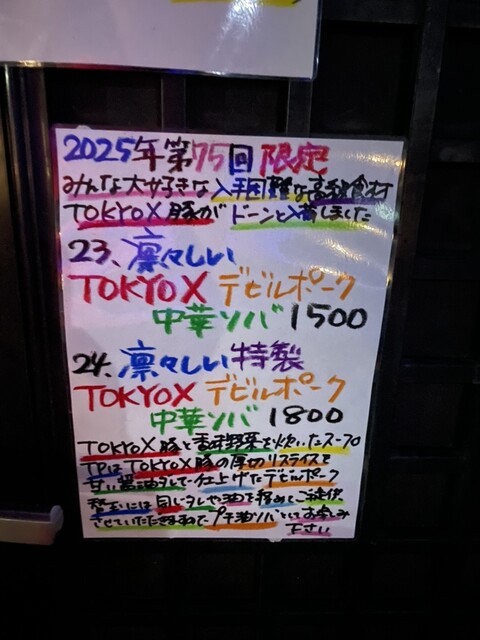 2025年第75回 限定
みんな大好きな入手困難な高級食材
TOKYOX豚がドーンと入荷しました
23、凛々しい
TOKYOX デビルポーク
中華ソバ 1500
24、凛々しい特製
TOKYOX デビルポーク
中華ソバ 1800
TOKYOX豚と香味野菜を炊いたスープ
TPはTOKYOX豚の厚切りスライスを
甘い醤油タレで仕上げたデビルポーク
替玉には同じタレや油を絡めてご提供
させていただきますので プチ油ソバとしてお楽しみ
下さい